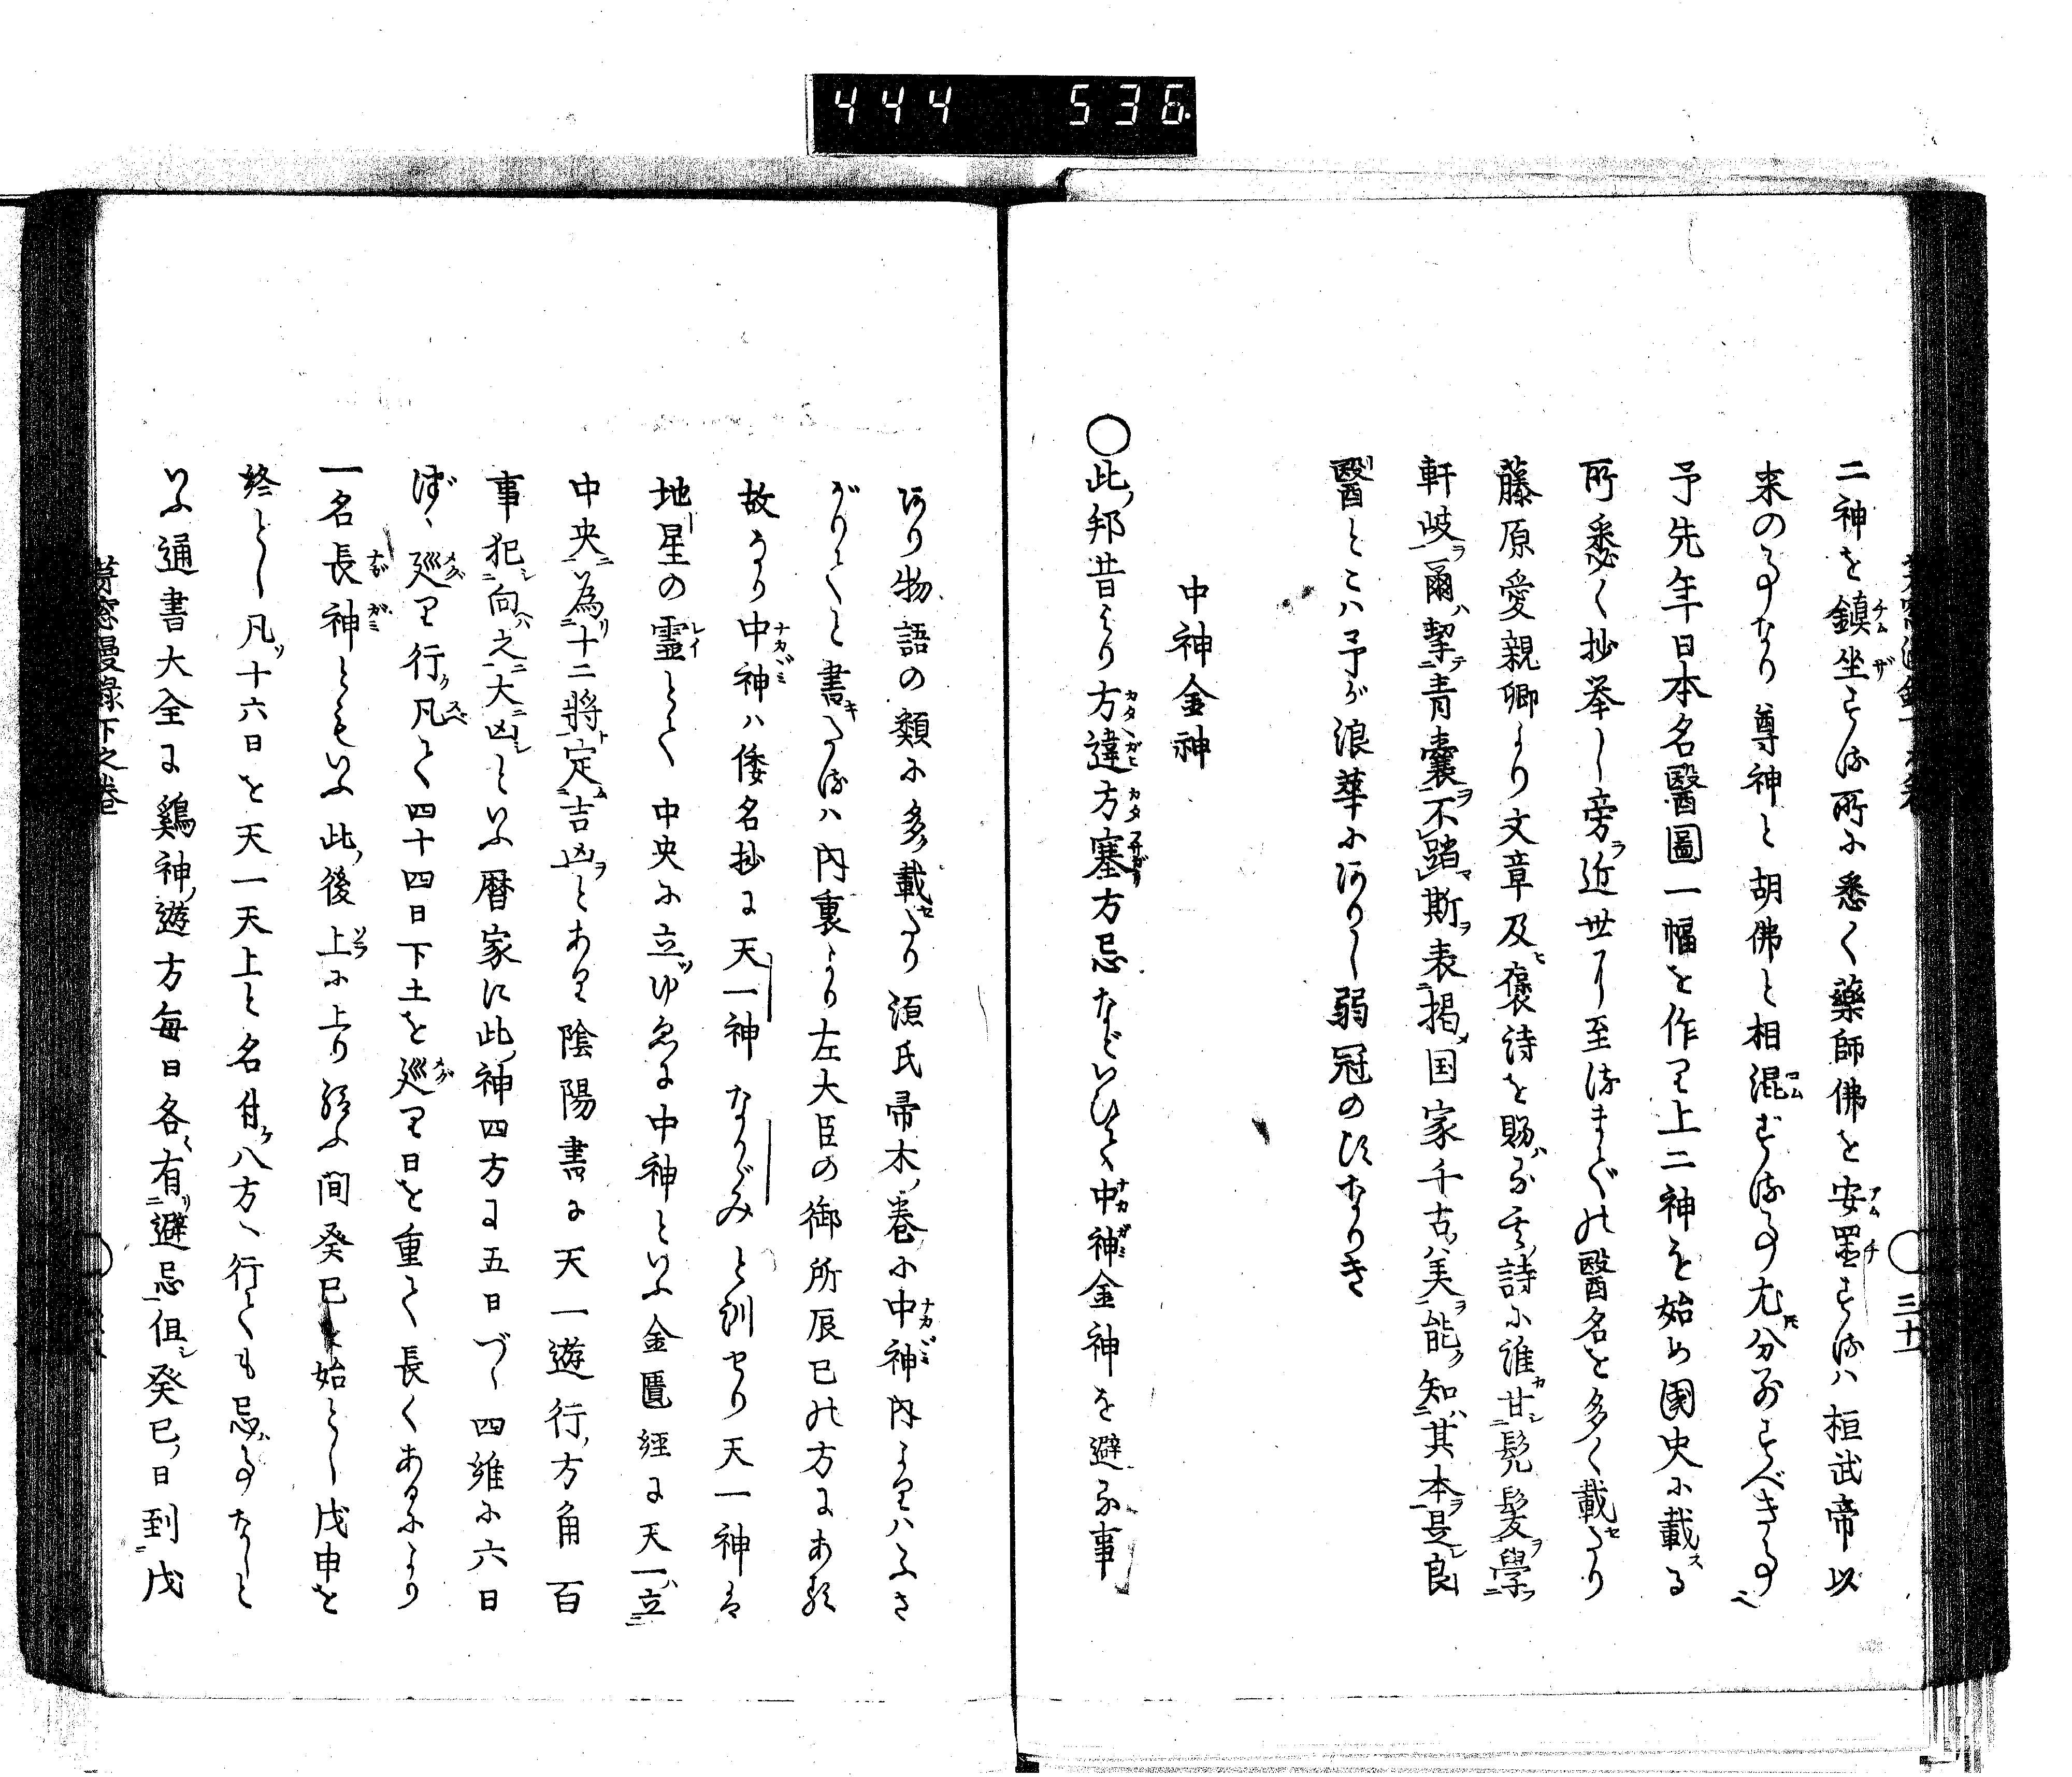 444 536
三十
二神を鎮坐する所に悉く藥師佛を安置するハ桓武帝以
来の事なり尊神と胡佛と相混ずる事尤分別すべき事
予先年日本名醫圖一幅を作り上二神を始め國史に載る
所悉く抄挙し旁近世に至るまでの醫名を多く載せたり
藤原愛親卿より文章及褒詩を賜ふ其詩に誰甘髠髪學
軒岐爾挈青嚢不踏斯表掲国家千古美能知其本是良
醫とこハ予が浪華にありし弱冠のほどなりき
中神金神
○此邦昔より方違方塞方忌などいひて中神金神を避る事
あり物語の類に多く載せたり源氏帚木巻に中神内よりハふさ
がりてと書きたるハ内裏より左大臣の御所辰巳の方にあたる
故なり中神ハ倭名抄に天一神なかがみと訓せり天一神は
地星の霊とて中央に立つゆゑに中神といふ金匱經に天一立
中央為十二将定吉凶とあり陰陽書に天一遊行方角百
事犯向之大凶といふ暦家に此神四方に五日づゝ四維に六日
づゝ廵り行凡て四十四日下土を廵り日を重て長くあるによりて
一名長神ともいふ此後上に上り給ふ間癸巳を始とし戊申を
終とし凡十六日を天一天上と名付八方へ行ても忌事なしと
いふ通書大全に鷄神遊方毎日各有避忌但癸巳日到戊
茅窓漫録下之巻